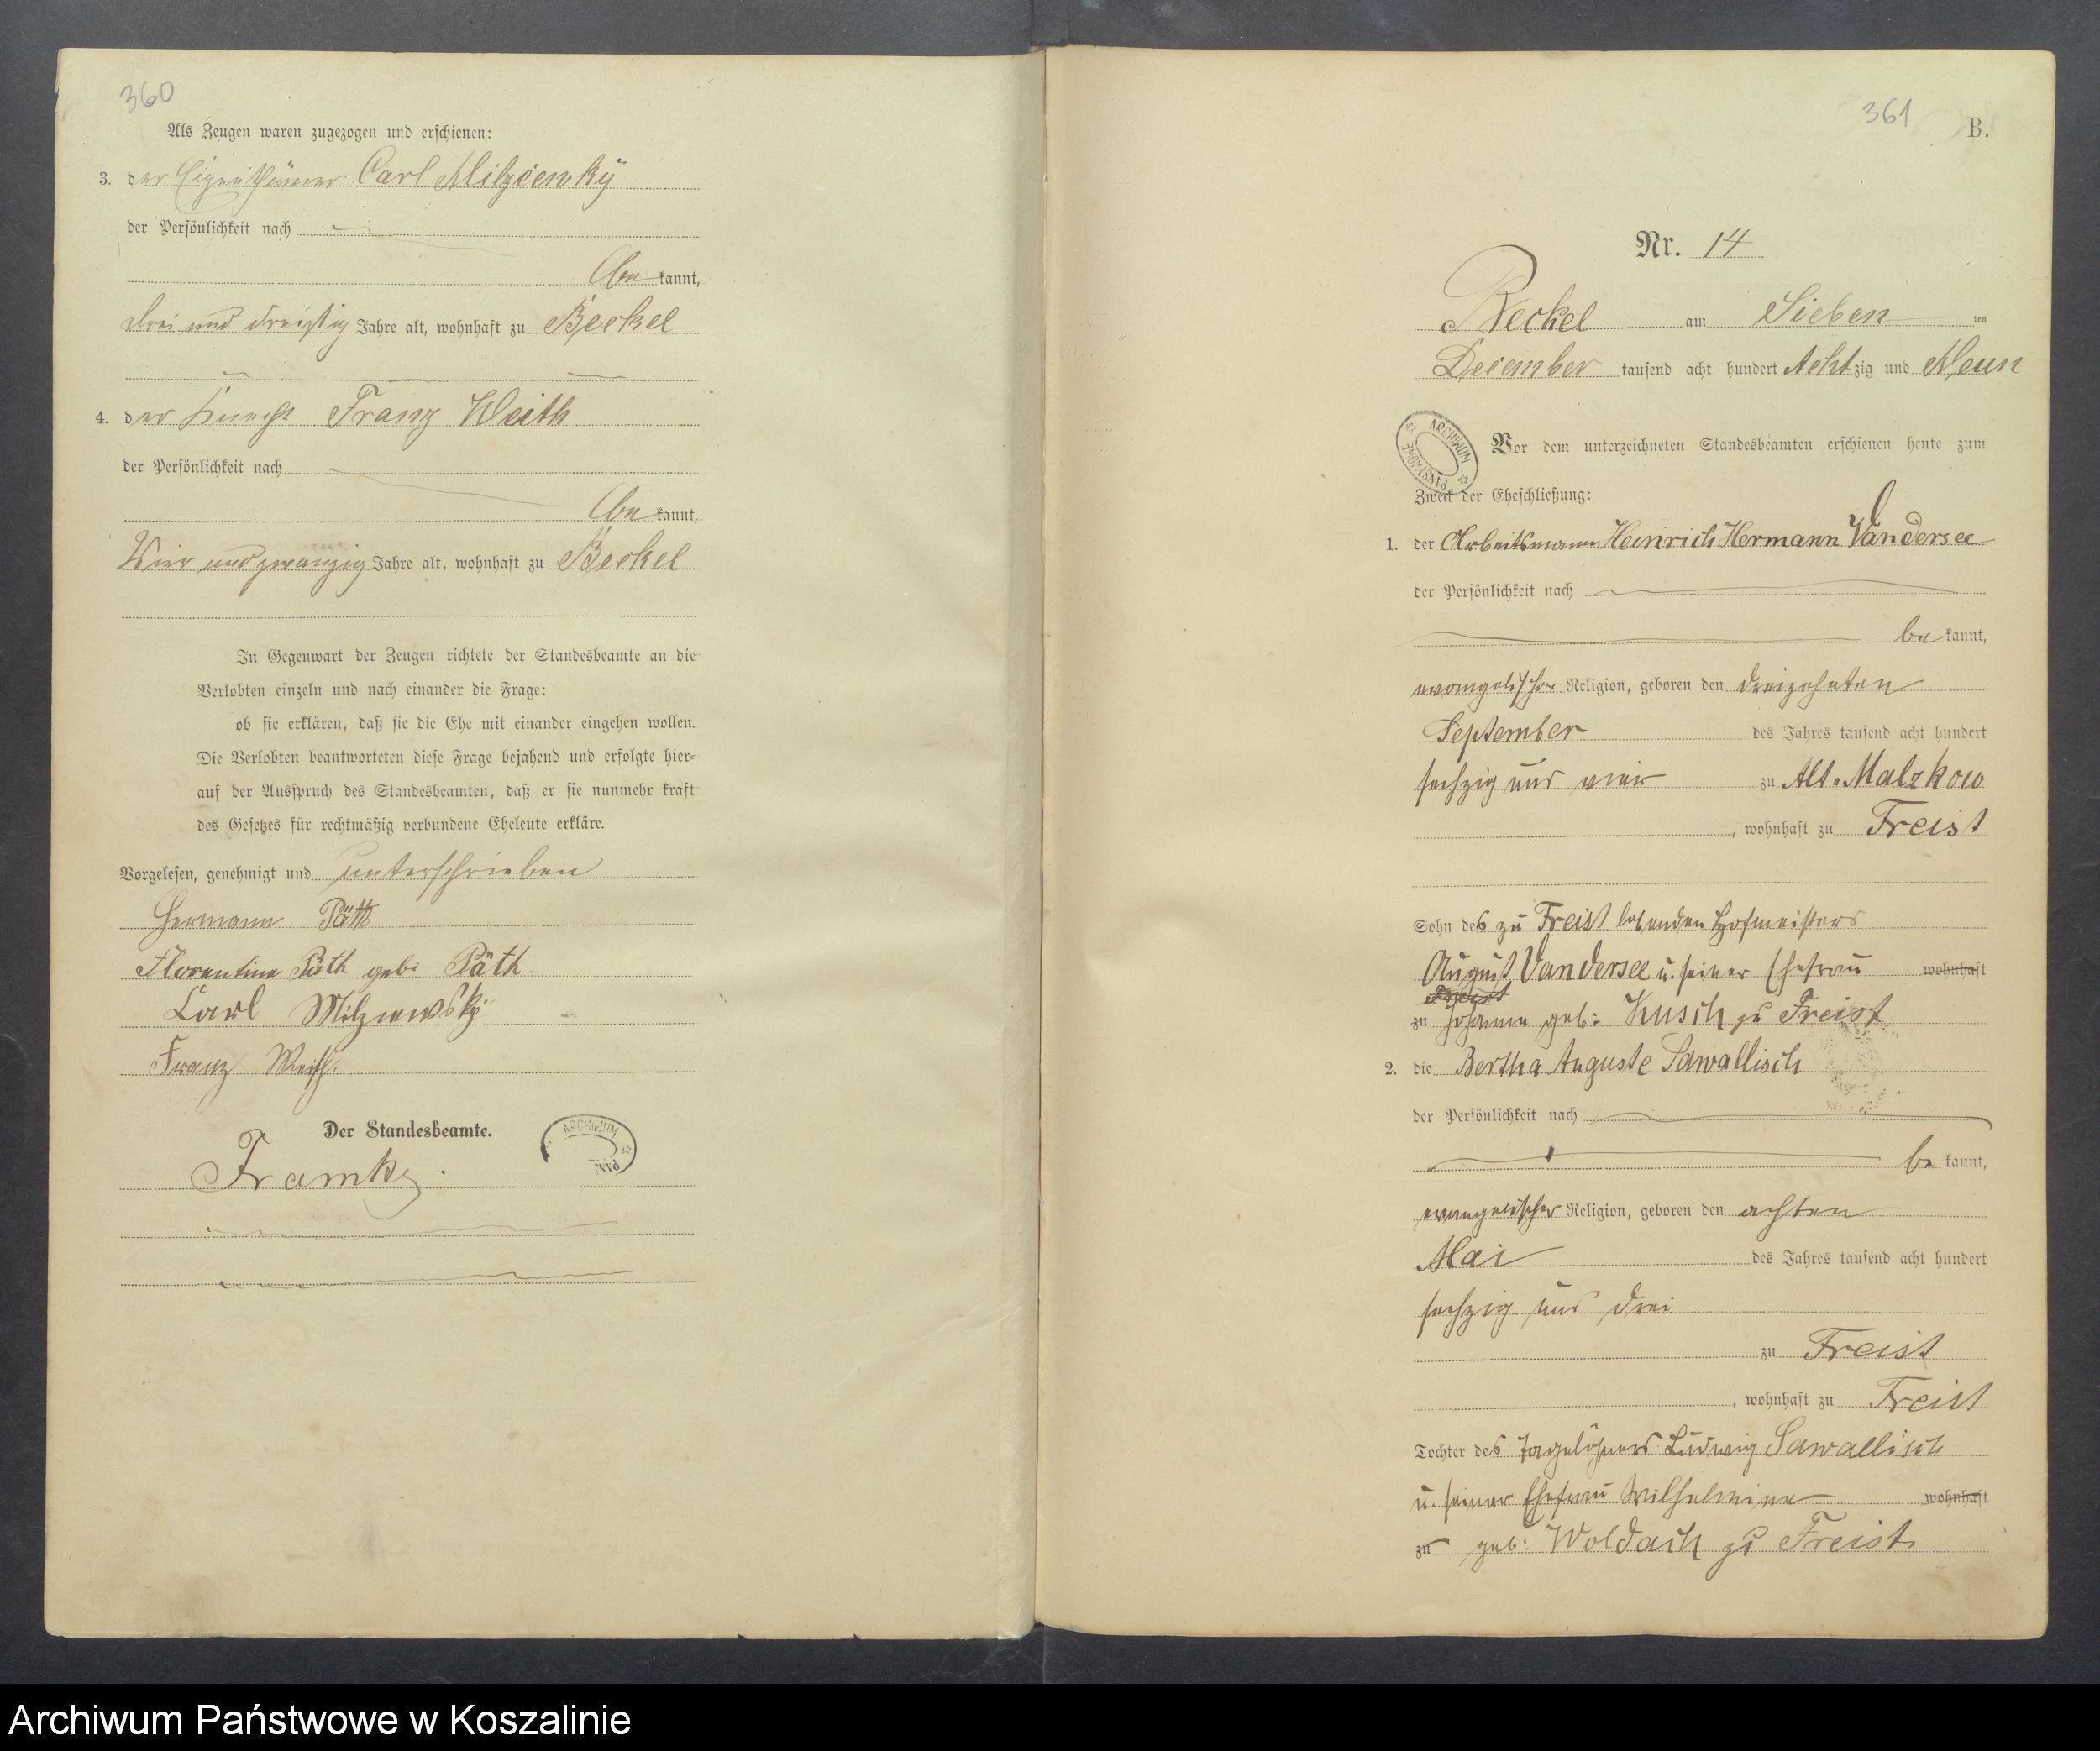 360
Als Zeugen waren zugezogen und erschienen:
3. der Eigenthümer Carl Milziewky
der Persönlichkeit nach
be kannt,
drei und dreißig Jahre alt, wohnhaft zu Beckel
4. der Knecht Franz Weith
der Persönlichkeit nach
be kannt,
Vier und zwanzig Jahre alt, wohnhaft zu Beckel
In Gegenwart der Zeugen richtete der Standesbeamte an die
Verlobten einzeln und nach einander die Frage:
ob sie erklären, daß sie die Ehe mit einander eingehen wollen.
Die Verlobten beantworteten diese Frage bejahend und erfolgte hier-
auf der Ausspruch des Standesbeamten, daß er sie nunmehr kraft
des Gesetzes für rechtmäßig verbundene Eheleute erkläre.
Vorgelesen, genehmigt und unterschrieben
Hermann Päth
Florentine Päth geb: Päth.
Carl Milziewsky
Franz Weith.
Der Standesbeamte.
ARCHIWUM
Framke.
361
B.
Nr. 14
Beckel am Sieben ten
December tausend acht hundert Acht zig und Neun
ARCHIWUM PAŃSTWOWE
Vor dem unterzeichneten Standesbeamten erschienen heute zum
Zweck der Eheschließung:
1. der Arbeitsmann Heinrich Hermann Vandersee
der Persönlichkeit nach
be kannt,
evangelischer Religion, geboren den dreizehnten
September des Jahres tausend acht hundert
sechzig und vier zu Alt-Malzkow
, wohnhaft zu Freist
Sohn des zu Freist lebenden Hofmeisters
August Vandersee u. seiner Ehefrau wohnhaft
zu Johanne geb: Kusch zu Freist
2. die Bertha Auguste Sawallisch
der Persönlichkeit nach
be kannt,
evangelischer Religion, geboren den achten
Mai des Jahres tausend acht hundert
sechzig und drei
zu Freist
, wohnhaft zu Freist
Tochter des Tagelöhners Ludwig Sawallisch
u. seiner Ehefrau Wilhelmine wohnhaft
zu geb: Woldach zu Freist
Archiwum Państwowe w Koszalinie